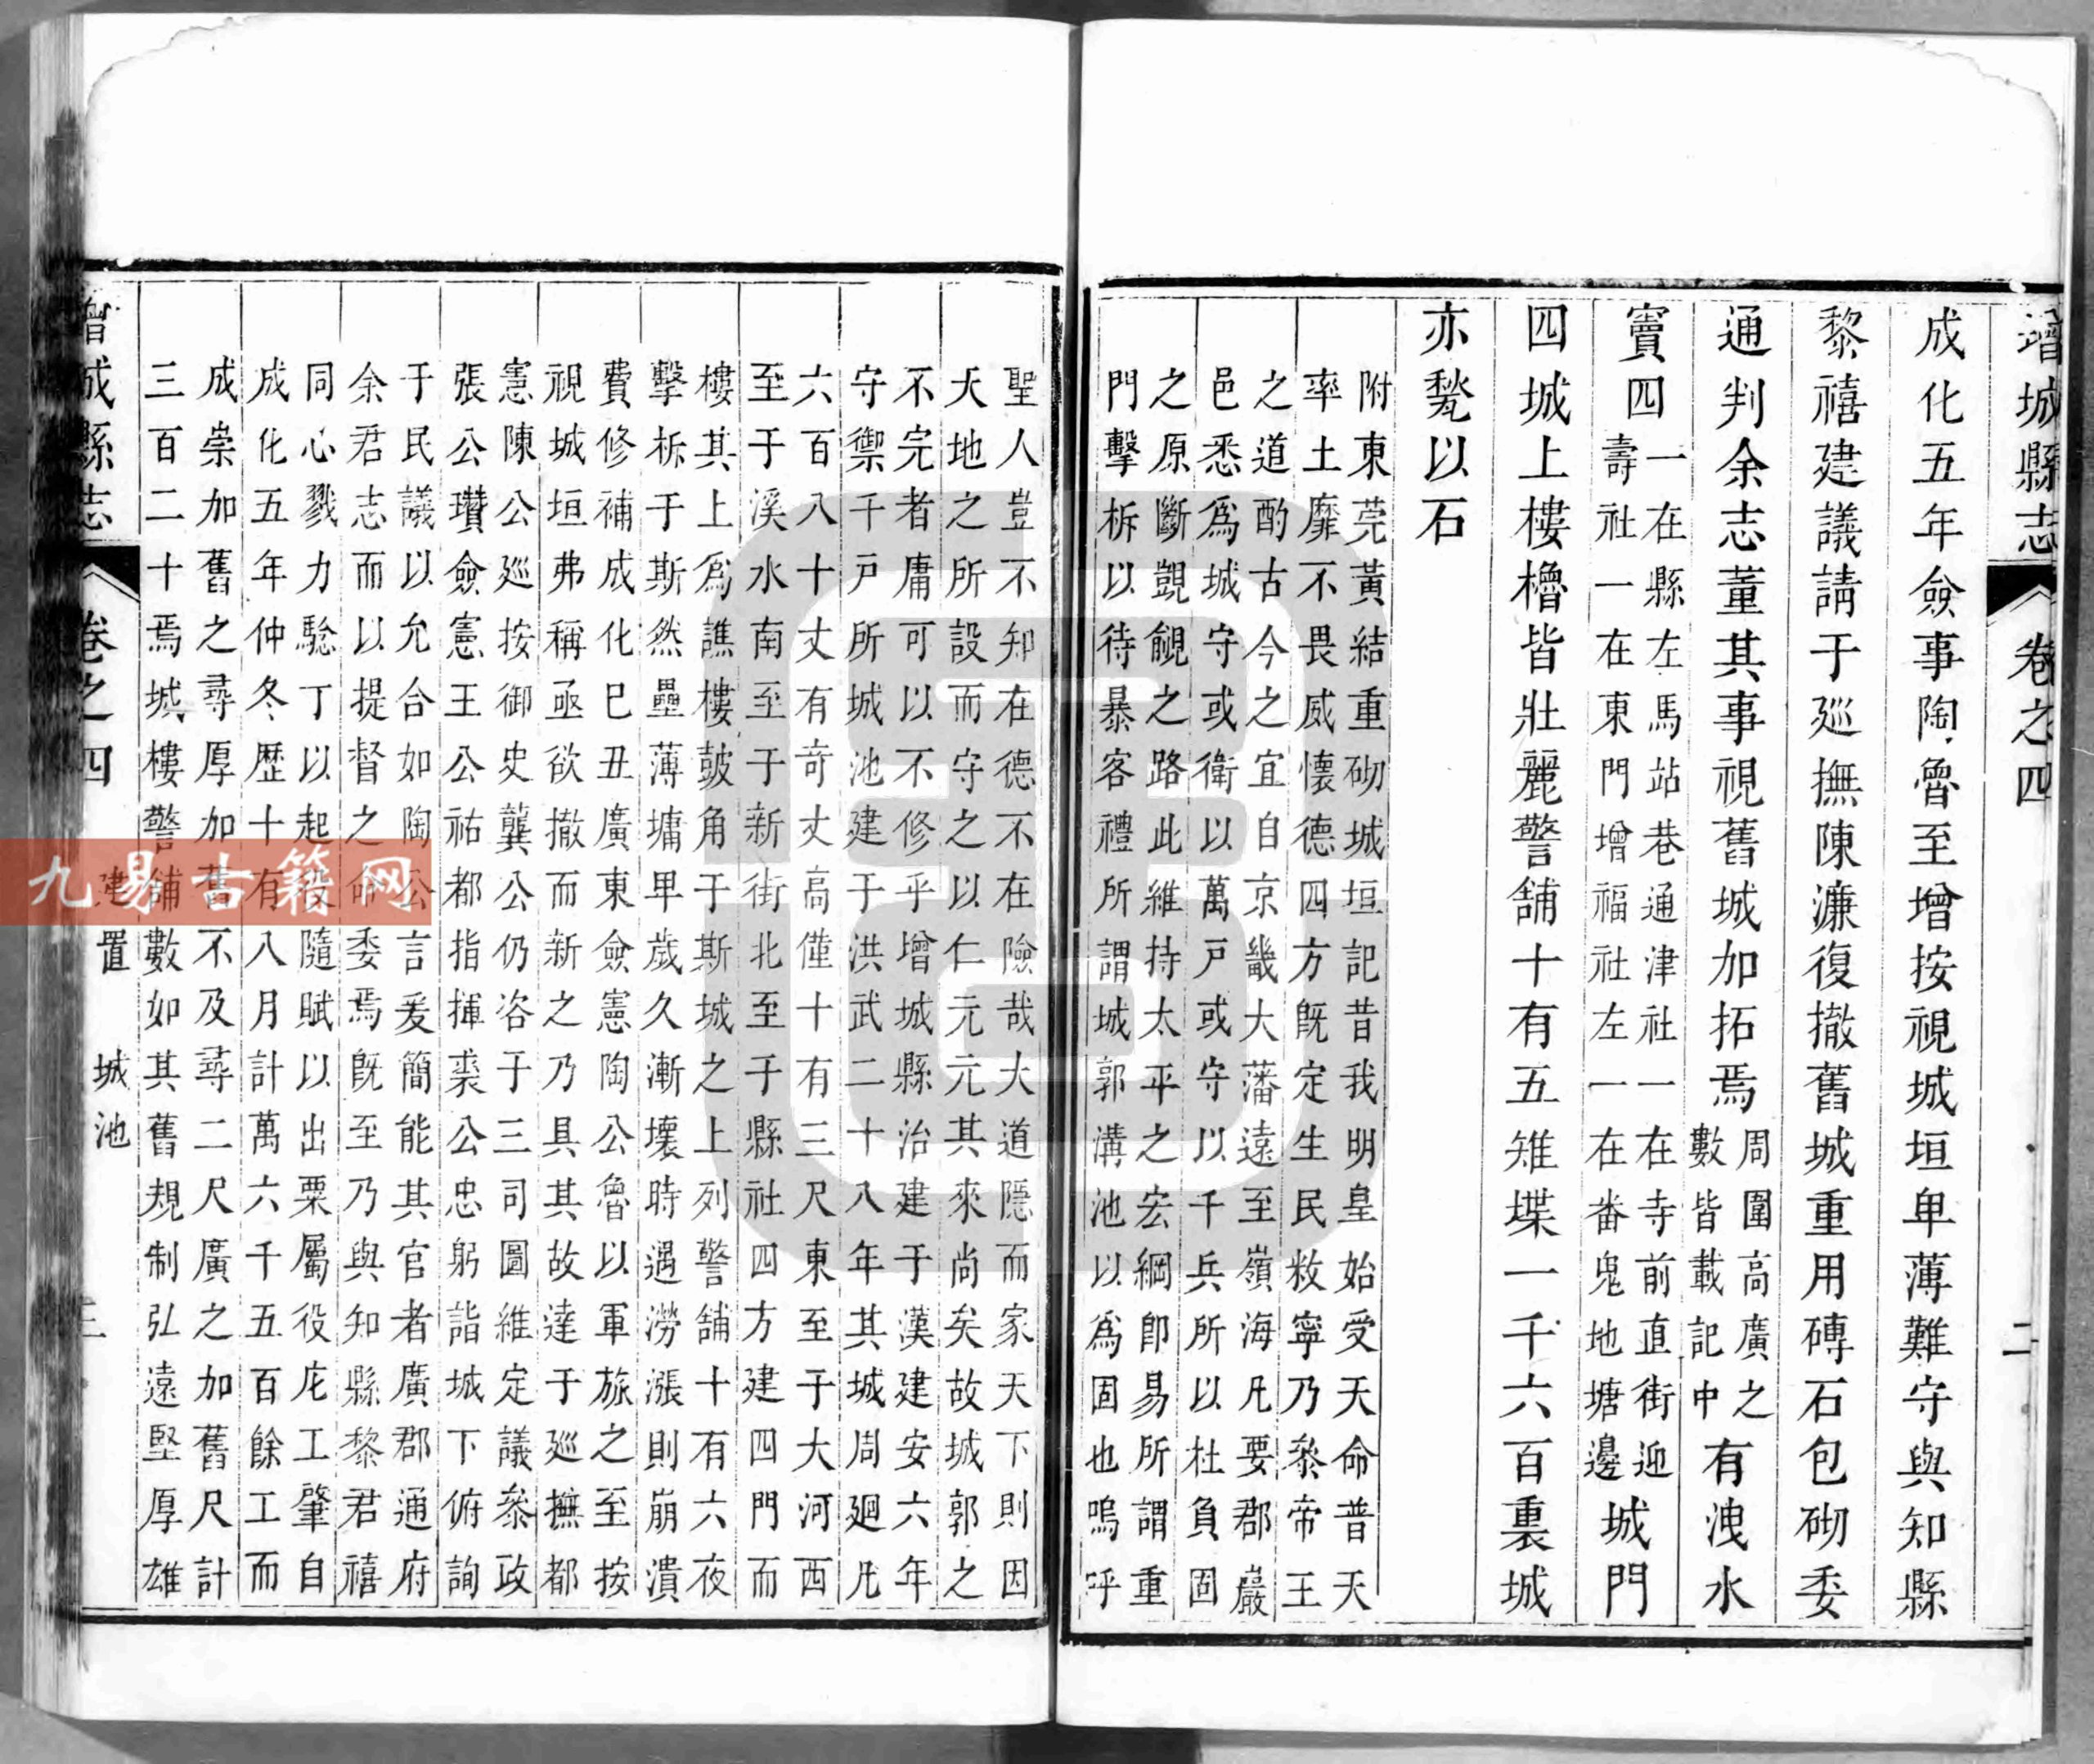 增城縣志 卷之四 二
成化五年僉事陶魯至增按視城垣卑薄難守與知縣
黎禧建議請于廵撫陳濂復撤舊城重用磚石包砌委
通判余志董其事視舊城加拓焉周圍高廣之數皆載記中有洩水
竇四一在縣左馬站巷通津社一在寺前直街迎壽社一在東門增福社左一在畨鬼地塘邊城門
四城上樓櫓皆壯麗警舖十有五雉堞一千六百裏城
亦甃以石
附東莞黃結重砌城垣記昔我明皇始受天命普天
率土靡不畏威懷德四方旣定生民敉寧乃㕘帝王
之道酌古今之宜自京畿大藩遠至嶺海凡要郡巖
邑悉爲城守或衛以萬戸或守以千兵所以杜負固
之原斷覬覦之路此維持太平之宏綱卽易所謂重
門擊柝以待暴客禮所謂城郭溝池以爲固也嗚呼
聖人豈不知在德不在險哉大道隱而家天下則因
天地之所設而守之以仁元元其來尚矣故城郭之
不完者庸可以不修乎增城縣治建于漢建安六年
守禦千戸所城池建于洪武二十八年其城周廻凡
六百八十丈有竒丈高僅十有三尺東至于大河西
至于溪水南至于新街北至于縣社四方建四門而
樓其上爲譙樓皷角于斯城之上列警舖十有六夜
擊柝于斯然壘薄墉卑歲久漸壞時遇澇漲則崩潰
費修補成化巳丑廣東僉憲陶公魯以軍旅之至按
視城垣弗稱亟欲撤而新之乃具其故達于廵撫都
憲陳公廵按御史龔公仍咨于三司圖維定議叅政
張公瓚僉憲王公祐都指揮裘公忠躬詣城下俯詢
于民議以允合如陶公言爰簡能其官者廣郡通府
余君志而以提督之命委焉旣至乃與知縣黎君禧
同心戮力騐丁以起役隨賦以出粟屬役庀工肇自
成化五年仲冬歷十有八月計萬六千五百餘工而
成崇加舊之尋厚加舊不及尋二尺廣之加舊尺計
三百二十焉城樓警舖數如其舊規制弘遠堅厚雄
增城縣志 卷之四 建置 城池 三
九易古籍网